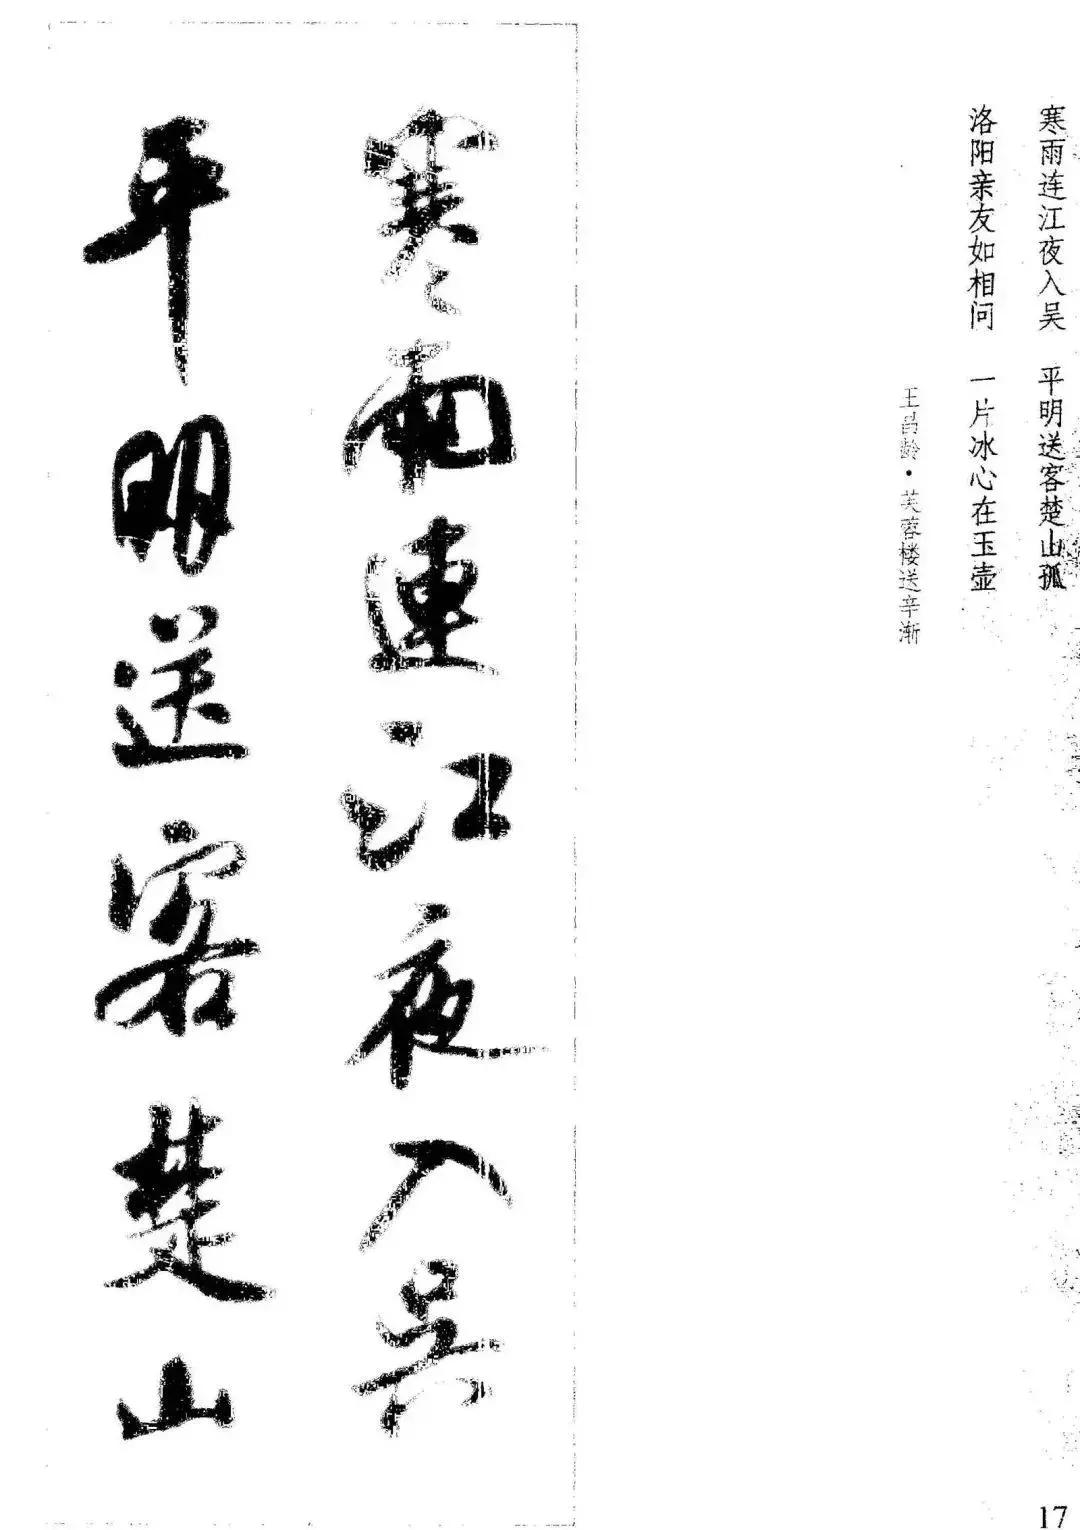 寒雨连江夜入吴 平明送客楚山孤
洛阳亲友如相问 一片冰心在玉壶
王昌龄·芙蓉楼送辛渐
寒雨連江夜入吳
平明送客楚山
17